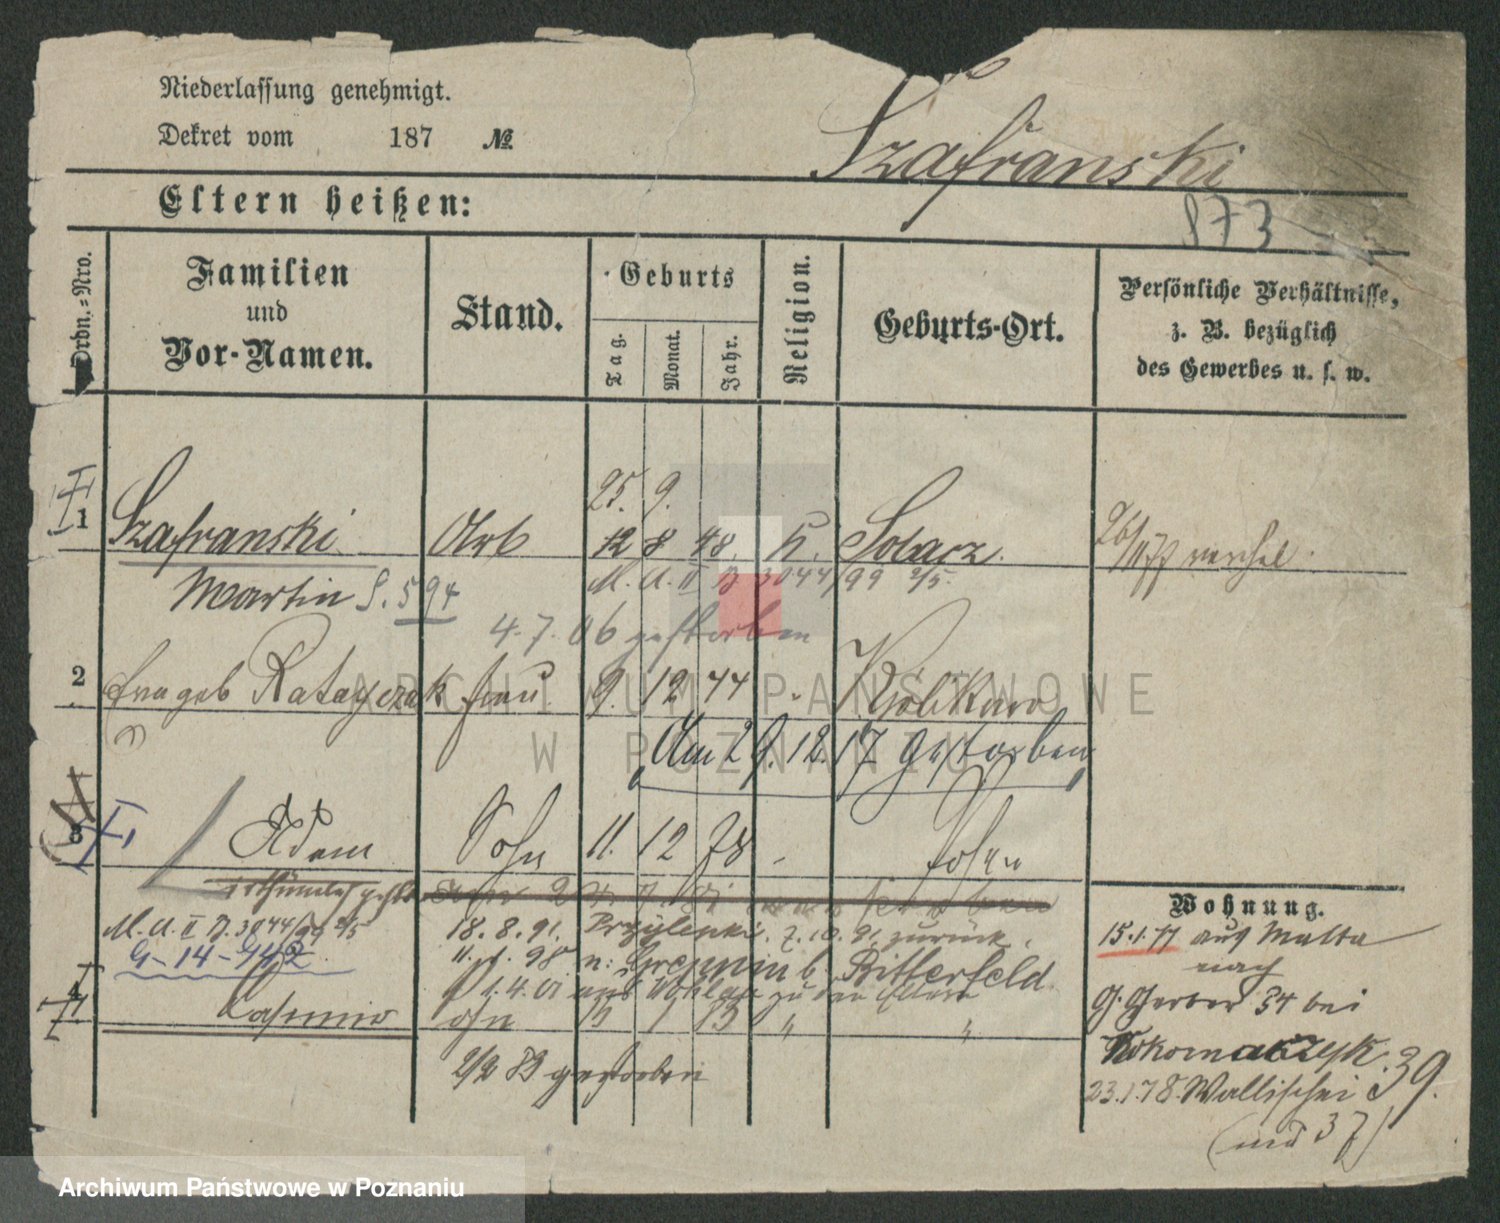 Niederlassung genehmigt.
Dekret vom 187 №
Szafranski
Eltern heißen:
873
Ordn.=Nro.
Familien
und
Vor-Namen.
Stand.
Geburts
Tag.
Monat.
Jahr.
Religion.
Geburts-Ort.
Persönliche Verhältnisse,
z. B. bezüglich
des Gewerbes u. s. w.
25. 9.
1 Szafranski Arb 12 8 48. K. Solacz.
Martin S. 594 M. A. II B 3044/99 2/5
4. 7. 06 gestorben
2 Frau geb Ratajczak Frau 9. 12 44 Wolikowo
Am 29. 12. 17 gestorben
3 Adam Sohn 11. 12 78 Posen
irthümlich
M. A. II B. 3044/99 2/5 18. 8. 91. Przylepki. 7. 10. 91. zurück.
G-14-942 11. 1. 98 n: Greppin b. Bitterfeld
1. 4. 01 aus zu den Eltern
4 Casimir Sohn 1 83 " "
2/2 83 gestorben
Wohnung.
15. 1. 77 aus Malta
nach
G. Gerber 34 bei
23. 1. 78. Wallischei 39.
(und 37)
ARCHIWUM PAŃSTWOWE
W POZNANIU
Archiwum Państwowe w Poznaniu